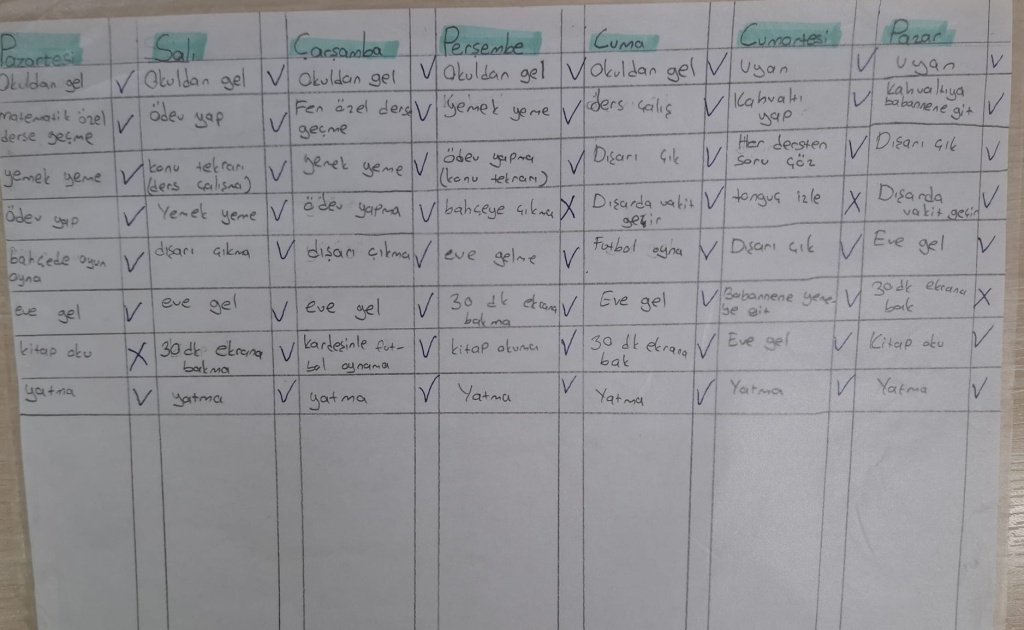 Pazartesi Salı Çarşamba Perşembe Cuma Cumartesi Pazar
Okuldan gel ✓ Okuldan gel ✓ Okuldan gel ✓ Okuldan gel ✓ Okuldan gel ✓ Uyan ✓ Uyan ✓
matematik özel derse geçme ✓ Ödev yap ✓ Fen özel derse geçme ✓ Yemek yeme ✓ ders çalış ✓ Kahvaltı yap ✓ Kahvaltıya babannene git ✓
yemek yeme ✓ konu tekrarı (ders çalışma) ✓ yemek yeme ✓ ödev yapma (konu tekrarı) ✓ Dışarı çık ✓ Her dersten soru çöz ✓ Dışarı çık ✓
ödev yap ✓ Yemek yeme ✓ ödev yapma ✓ bahçeye çıkma X Dışarda vakit geçir ✓ tonguç izle X Dışarda vakit geçir ✓
bahçede oyun oyna ✓ dışarı çıkma ✓ dışarı çıkma ✓ eve gelme ✓ Futbol oyna ✓ Dışarı çık ✓ Eve gel ✓
eve gel ✓ eve gel ✓ eve gel ✓ 30 dk ekrana bakma ✓ Eve gel ✓ Babannene yemeye git ✓ 30 dk ekrana bak X
kitap oku X 30 dk ekrana bakma ✓ kardeşinle futbol oynama ✓ kitap okuma ✓ 30 dk ekrana bak ✓ Eve gel ✓ Kitap oku ✓
yatma ✓ yatma ✓ yatma ✓ Yatma ✓ Yatma ✓ Yatma ✓ Yatma ✓